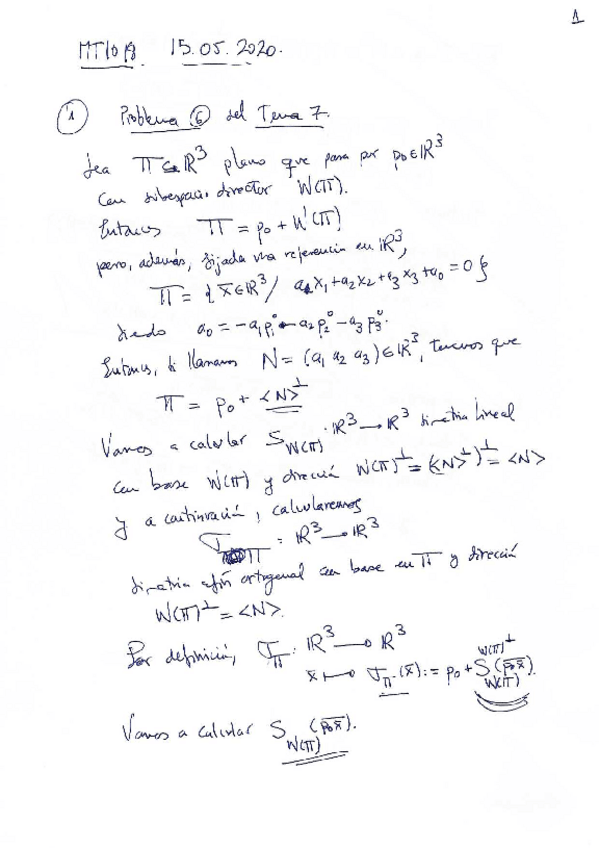 1
MT1018 15.05.2020.
1 Problema 6 del Tema 7.
Sea π ⊂ ℝ³ plano que pasa por p₀∈ℝ³
con subespacio director W(π).
Entonces π = p₀ + W(π)
pero, además, fijada una referencia en ℝ³,
π = { x̄∈ℝ³ / a₁x₁+a₂x₂+a₃x₃+a₀ = 0 }
siendo a₀ = -a₁p₁⁰ - a₂p₂⁰ - a₃p₃⁰.
Entonces, si llamamos N = (a₁ a₂ a₃) ∈ ℝ³, tenemos que
π = p₀ + <N>^⊥
Vamos a calcular S_W(π) : ℝ³ → ℝ³ simetría lineal
con base W(π) y dirección W(π)^⊥ = (<N>^⊥)^⊥ = <N>
y a continuación, calcularemos
σ_π : ℝ³ → ℝ³
simetría afín ortogonal con base en π y dirección
W(π)^⊥ = <N>.
Por definición, σ_π : ℝ³ → ℝ³
x̄ ↦ σ_π(x̄) := p₀ + S_W(π)^W(π)^⊥ (p₀x̄).
Vamos a calcular S_W(π) (p₀x̄).